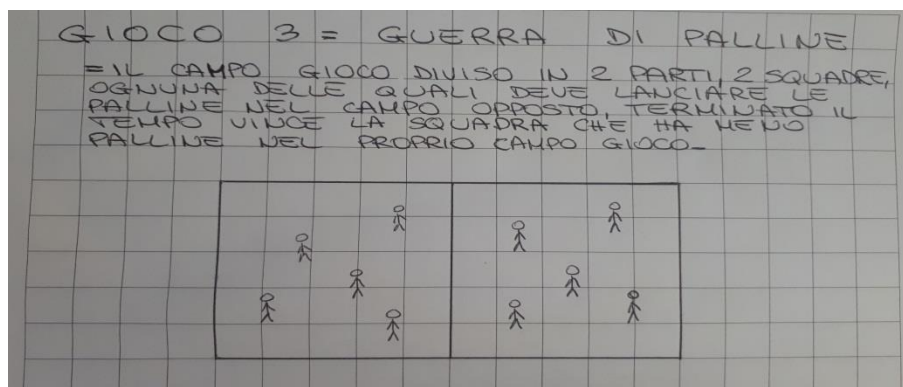 GIOCO 3 = GUERRA DI PALLINE
= IL CAMPO GIOCO DIVISO IN 2 PARTI, 2 SQUADRE,
OGNUNA DELLE QUALI DEVE LANCIARE LE
PALLINE NEL CAMPO OPPOSTO, TERMINATO IL
TEMPO VINCE LA SQUADRA CHE HA MENO
PALLINE NEL PROPRIO CAMPO GIOCO_